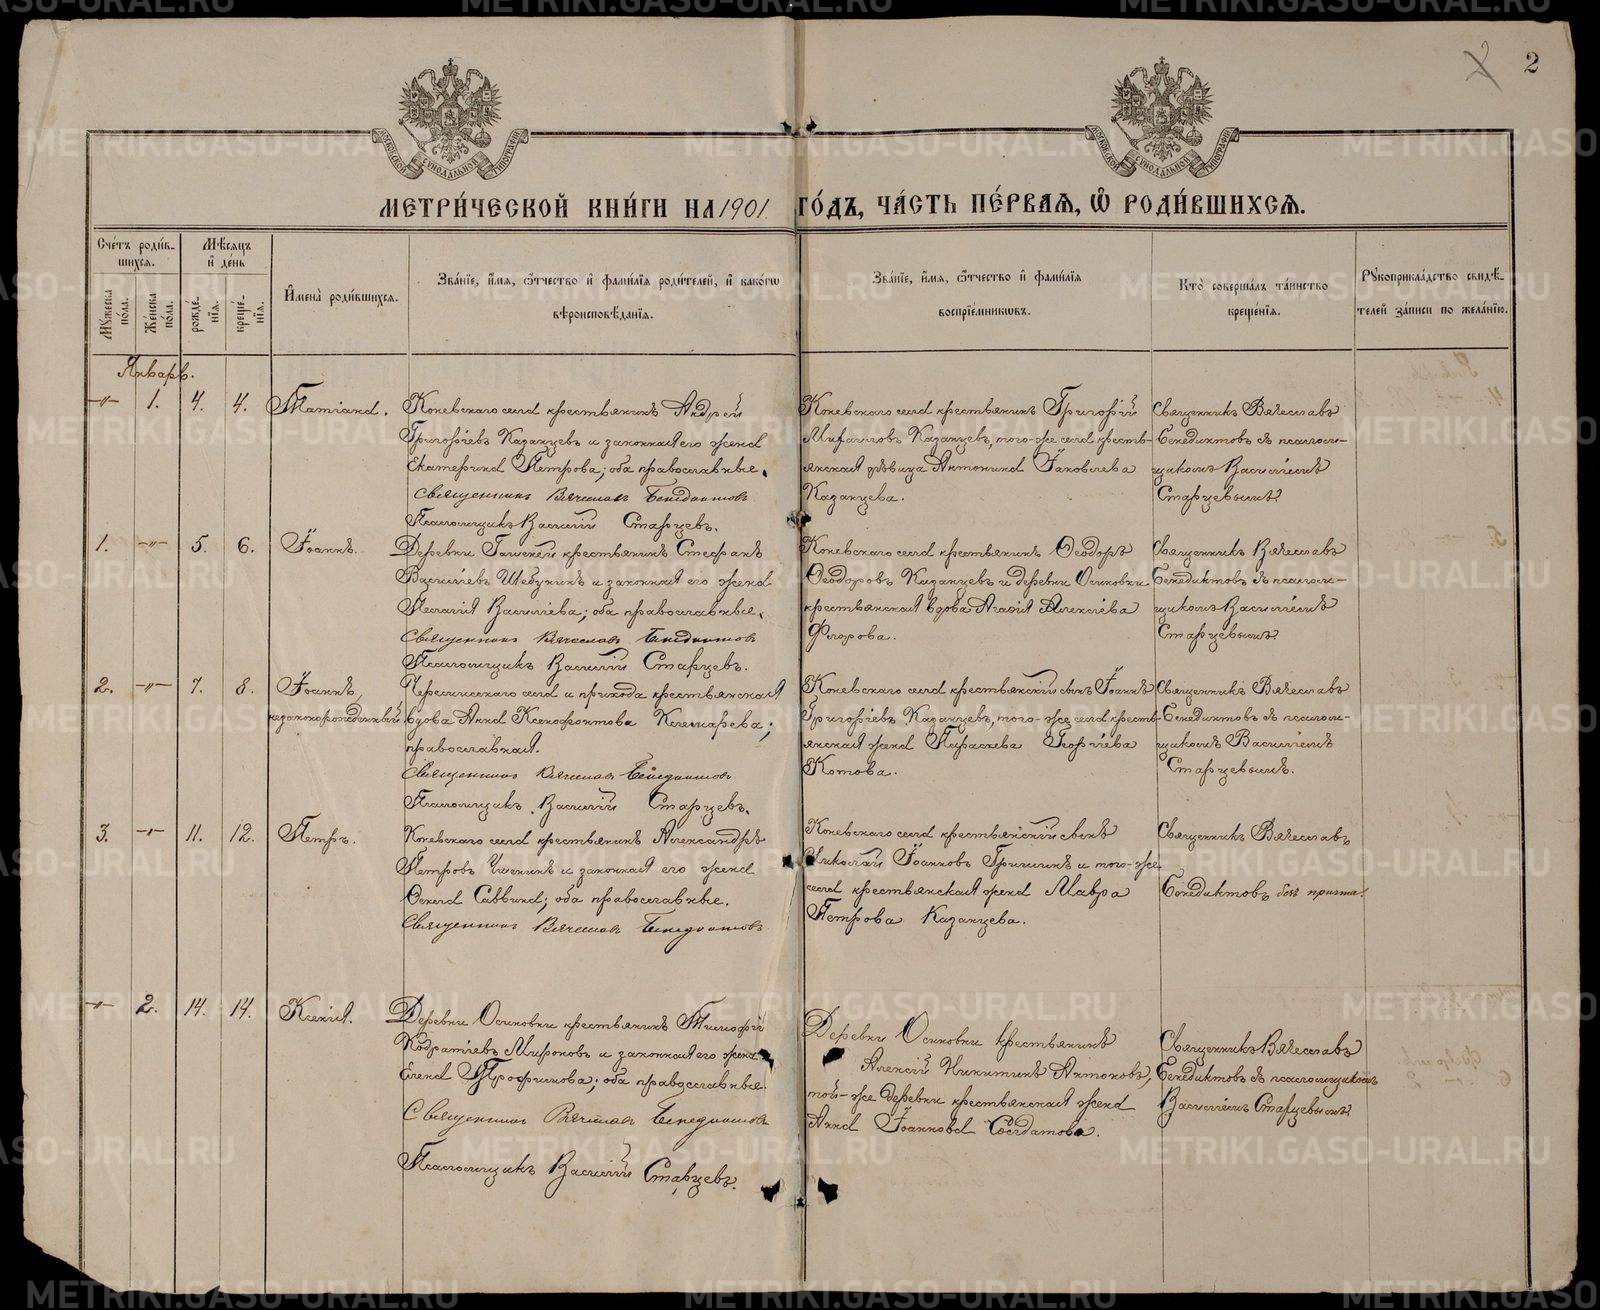 2
МЕТРИ́ЧЕСКОЙ КНИ́ГИ НА 1901 ГО́ДЪ, ЧА́СТЬ ПЕ́РВАѦ, Ѽ РОДИ́ВШИХСѦ.
Сче́тъ роди́в-
шихсѧ.
Мꙋ́жеска по́ла.
Же́нска по́ла.
Мѣ́сѧцъ
и҆ де́нь
рожде́-
нїѧ.
креще́-
нїѧ.
И҆мена̀ роди́вшихсѧ.
Зва́нїе, и҆́мѧ, ѻ҆́тчество и҆ фами́лїѧ роди́телей, и҆ како́гѡ
вѣроисповѣ́данїѧ.
Зва́нїе, и҆́мѧ, ѻ҆́тчество и҆ фами́лїѧ
воспрїе́мникѡвъ.
Кто̀ соверша́лъ та́инство
креще́нїѧ.
Рꙋкоприкла́дство свидѣ́-
телей за́писи по жела́нїю.
Январь.
-"- 1. 4. 4. Татіана.
Коневскаго села крестьянинъ Андрей
Григоріевъ Казанцевъ и законная его жена
Екатерина Петрова; оба православные.
Священникъ Вячеславъ Бенедиктовъ
Псаломщикъ Василій Старцевъ.
Коневскаго села крестьянинъ Григорій
Михаиловъ Казанцевъ, того-же села кресть-
янская дѣвица Антонина Іаковлева
Казанцева.
Священникъ Вячеславъ
Бенедиктовъ съ псалом-
щикомъ Василіемъ
Старцевымъ.
1. -"- 5. 6. Іоаннъ.
Деревни крестьянинъ Стефанъ
Василіевъ Шебунинъ и законная его жена
Пелагія Василіева; оба православные.
Священникъ Вячеславъ Бенедиктовъ
Псаломщикъ Василій Старцевъ.
Коневскаго села крестьянинъ Ѳеодоръ
Ѳеодоровъ Казанцевъ и деревни Осиновки
крестьянская вдова Агаѳія Алексіева
Флорова.
Священникъ Вячеславъ
Бенедиктовъ съ псалом-
щикомъ Василіемъ
Старцевымъ.
2. -"- 7. 8. Іоаннъ,
незаконорожденный
села и прихода крестьянская
вдова Анна Ксенофонтова;
православная.
Священникъ Вячеславъ Бенедиктовъ
Псаломщикъ Василій Старцевъ.
Коневскаго села крестьянскій сынъ Іоаннъ
Григоріевъ Казанцевъ, того-же села кресть-
янская жена Параскева Георгіева
Котова.
Священникъ Вячеславъ
Бенедиктовъ съ псалом-
щикомъ Василіемъ
Старцевымъ.
3. -"- 11. 12. Петръ.
Коневскаго села крестьянинъ Александръ
Петровъ и законная его жена
Саввина; оба православные.
Священникъ Вячеславъ Бенедиктовъ
Коневскаго села крестьянскій сынъ
Николай Іоанновъ Гришинъ и того-же
села крестьянская жена Мавра
Петрова Казанцева.
Священникъ Вячеславъ
Бенедиктовъ безъ причта.
-"- 2. 14. 14. Ксенія.
Деревни Осиновки крестьянинъ Тимофій
Кодратіевъ Мироновъ и законная его жена
Елена Трофимова; оба православные
Священникъ Вячеславъ Бенедиктовъ
Псаломщикъ Василій Старцевъ.
Деревни Осиновки крестьянинъ
Алексій Никитинъ Антоновъ,
той-же деревни крестьянская жена
Анна Іоаннова Солдатова.
Священникъ Вячеславъ
Бенедиктовъ съ псаломщикомъ
Василіемъ Старцевымъ.
METRIKI.GASO-URAL.RU